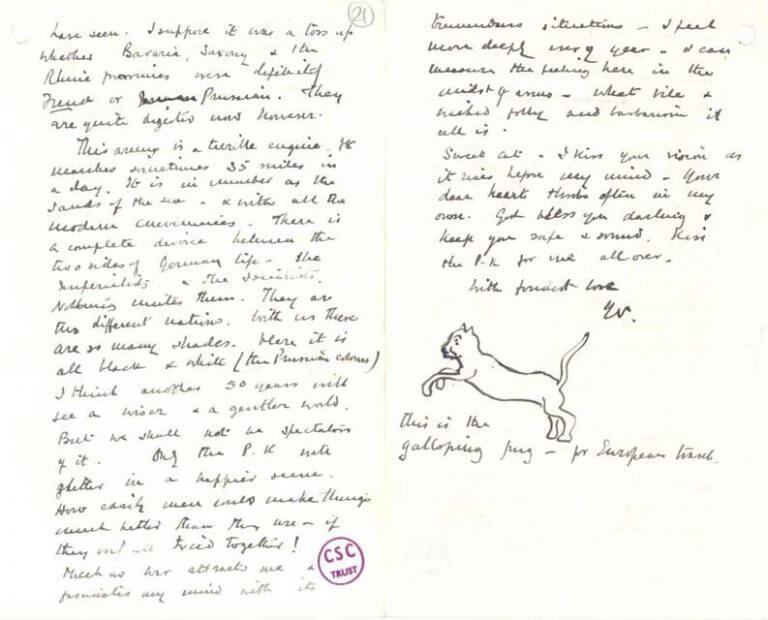 21
have seen. I suppose it was a toss up
whether Bavaria, Saxony & the
Rhine provinces were definitely
French or Prussian. They
are quite digested now however.
This army is a terrible engine. It
marches sometimes 35 miles in
a day. It is in number as the
sands of the sea - & with all the
modern conveniences. There is
a complete divorce between the
two sides of German life - the
Imperialists & the Socialists.
Nothing unites them. They are
two different nations. With us there
are so many shades. Here it is
all black & white (the Prussian colours)
I think another 50 years will
see a wiser & a gentler world.
But we shall not be spectators
of it. Only the P.K. will
glitter in a happier scene.
How easily men could make things
much better than they are - if
they only all tried together!
Much as war attracts me &
fascinates my mind with its
CSC
TRUST
tremendous situations - I feel
more deeply every year - & can
measure the feeling here in the
midst of arms - what vile &
wicked folly and barbarism it
all is.
Sweet cat - I kiss your vision as
it rises before my mind - Your
dear heart throbs often in my
own. God bless you darling &
keep you safe & sound. Kiss
the P.K. for me all over.
With fondest love
W.
this is the
galloping pug - for European travel.